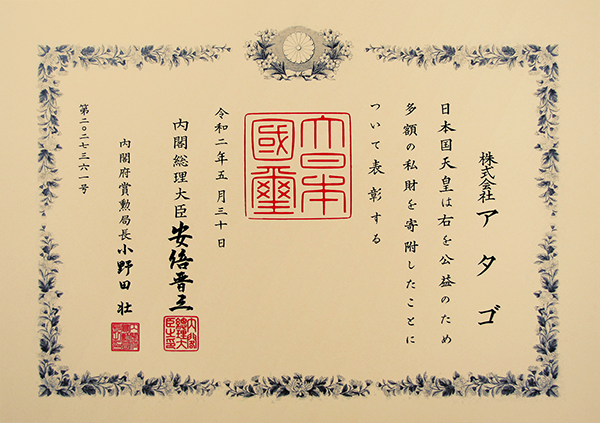 株式会社 アタゴ
日本国天皇は右を公益のため
多額の私財を寄附したことに
ついて表彰する
大日本
國璽
令和二年五月三十日
内閣総理大臣 安倍晋三
内閣総理大臣之印
内閣府賞勲局長 小野田 壮
第二〇二七三六一号